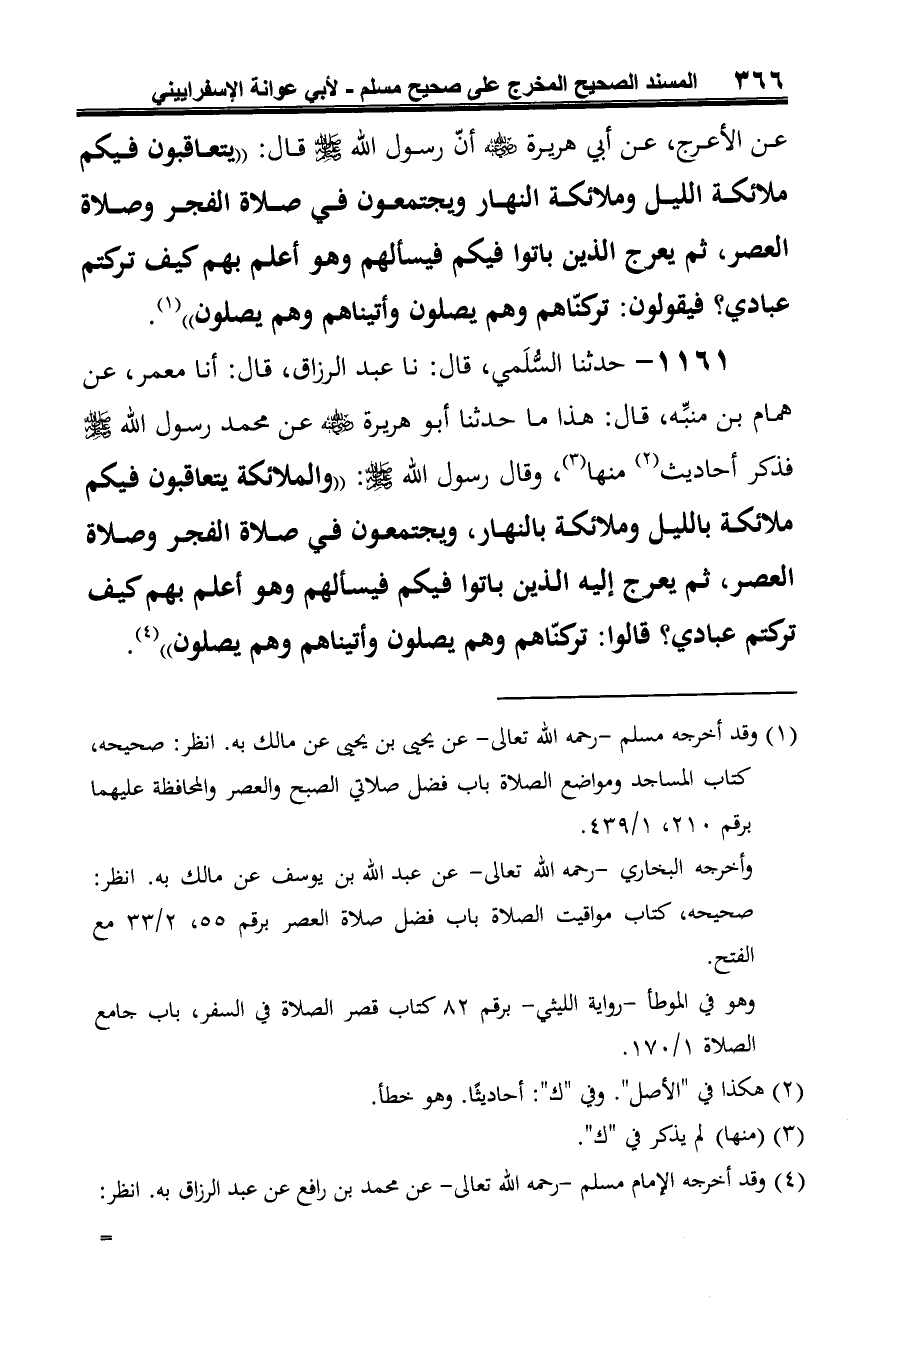 ٣٦٦ المسند الصحيح المخرج على صحيح مسلم - لأبي عوانة الإسفراييني
عـن الأعرج، عـن أبي هريرة ﵁ أنّ رسـول الله ﷺ قـال: ((يتعـاقبون فـيكم
ملائكـة الليـل وملائكـة النهـار ويجتمعـون فـي صـلاة الفجـر وصـلاة
العصر، ثم يعرج الذين باتوا فيكم فيسألهم وهو أعلم بهم كيف تركتم
عبادي؟ فيقولون: تركنّاهم وهم يصلون وأتيناهم وهم يصلون))(١).
١١٦١- حدثنا السُّلَمي، قال: نـا عبد الرزاق، قال: أنـا معمر، عن
همام بـن منبِّه، قـال: هـذا مـا حـدثنا أبـو هريـرة ﵁ عـن محمـد رسـول الله ﷺ
فذكر أحاديث(٢) منها(٣)، وقال رسول الله ﷺ: ((والملائكة يتعاقبون فيكم
ملائكـة بالليـل وملائكـة بالنهـار، ويجتمعـون فـي صـلاة الفجـر وصـلاة
العصـر، ثـم يعـرج إليـه الـذين بـاتوا فـيكم فيسـألهم وهـو أعلـم بهـم كيـف
تركتم عبادي؟ قالوا: تركنّاهم وهم يصلون وأتيناهم وهم يصلون))(٤).
(١) وقد أخرجه مسلم -رحمه الله تعالى- عن يحيى بن يحيى عن مالك به. انظر: صحيحه،
كتاب المساجد ومواضع الصلاة باب فضل صلاتي الصبح والعصر والمحافظة عليهما
برقم ٢١٠، ٤٣٩/١.
وأخرجه البخاري -رحمه الله تعالى- عن عبد الله بن يوسف عن مالك به. انظر:
صحيحه، كتاب مواقيت الصلاة باب فضل صلاة العصر برقم ٥٥، ٣٣/٢ مع
الفتح.
وهو في الموطأ -رواية الليثي- برقم ٨٢ كتاب قصر الصلاة في السفر، باب جامع
الصلاة ١٧٠/١.
(٢) هكذا في "الأصل". وفي "ك": أحاديثًا. وهو خطأ.
(٣) (منها) لم يذكر في "ك".
(٤) وقد أخرجه الإمام مسلم -رحمه الله تعالى- عن محمد بن رافع عن عبد الرزاق به. انظر:
=